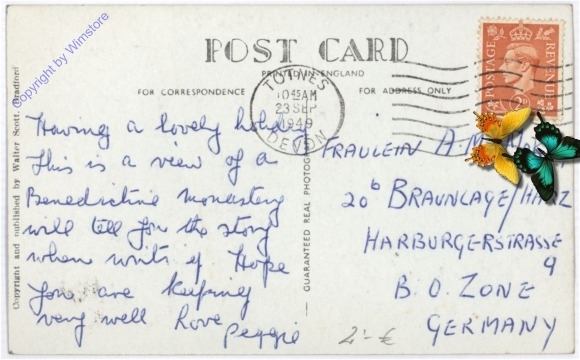 Copyright by Wimstore
POST CARD
PRINTED IN ENGLAND
FOR CORRESPONDENCE
FOR ADDRESS ONLY
TOTNES
10 45 AM
23 SEP
1949
DEVON
POSTAGE
REVENUE
Having a lovely holiday
This is a view of a
Benedictine monastery
will tell you the story
when write if Hope
you are keeping
very well Love
Peggie
FRÄULEIN A.
20b BRAUNLAGE/HARZ
HARBURGERSTRASSE
9
B.O. ZONE
GERMANY
2'-€
Copyright and published by Walter Scott, Bradford
GUARANTEED REAL PHOTOGRAPH